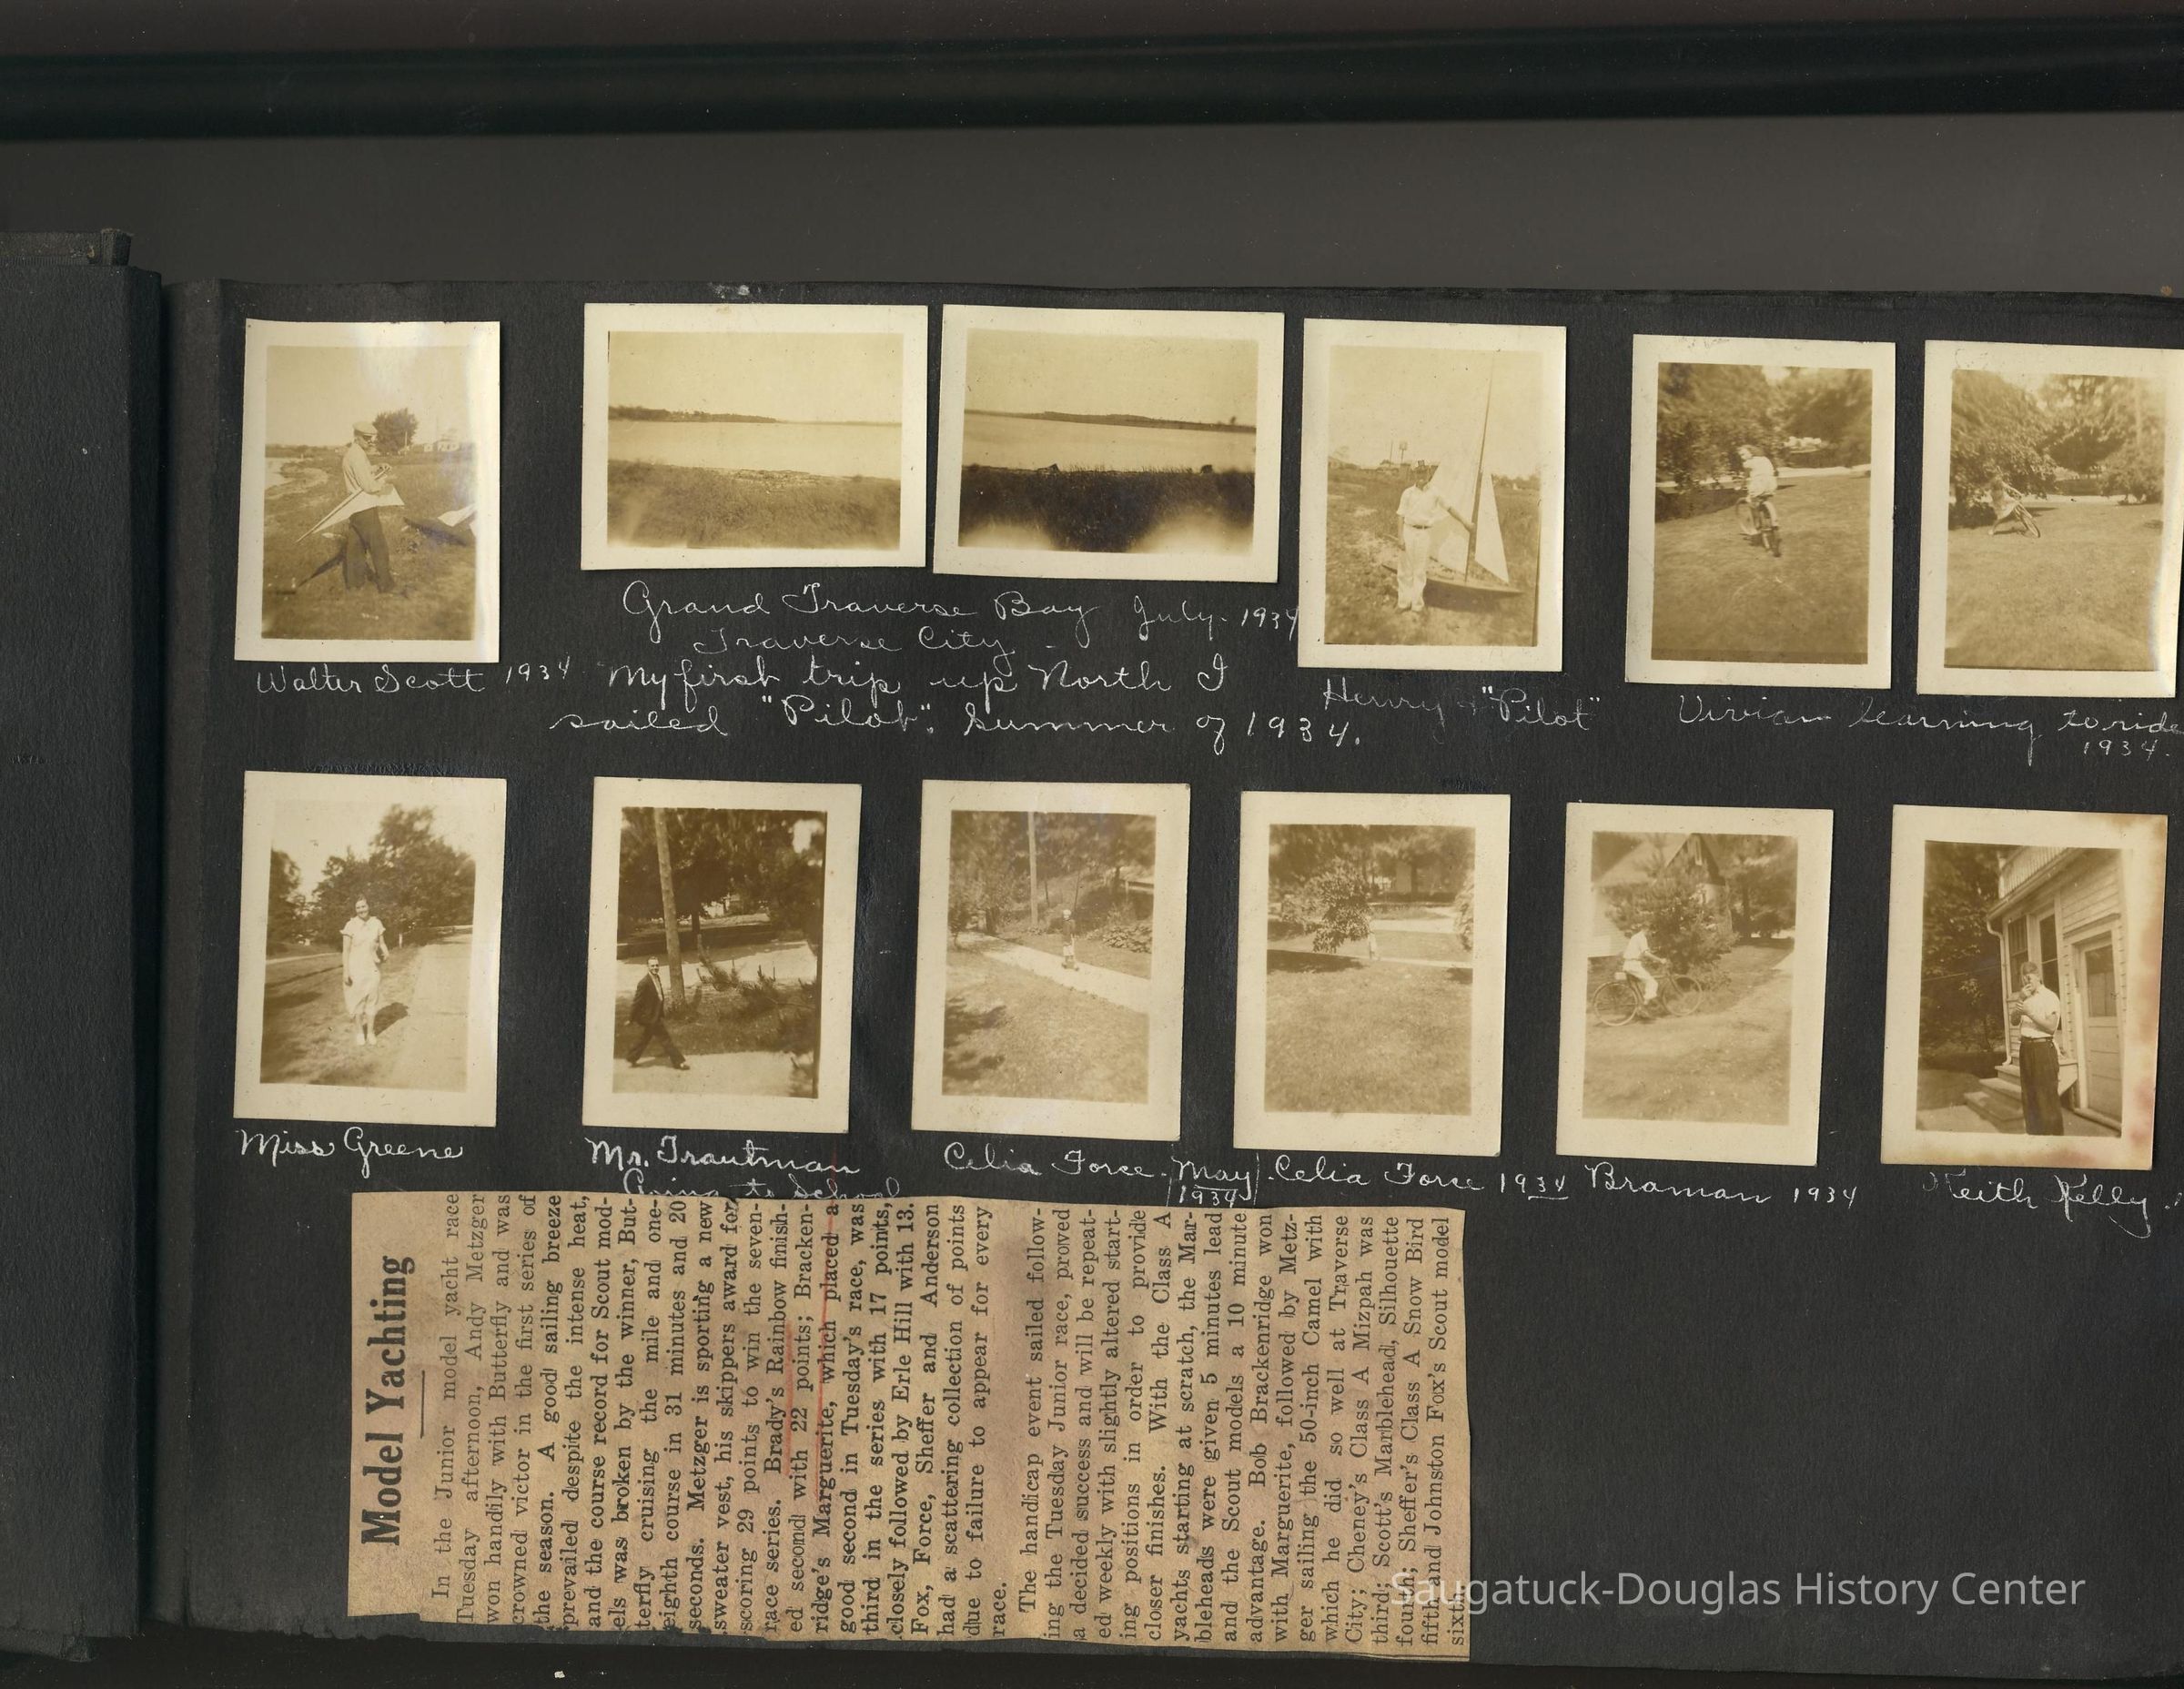 Walter Scott 1934
Grand Traverse Bay July. 1934
Traverse City -
My first trip up North I
sailed "Pilot". Summer of 1934.
Henry & "Pilot"
Vivian learning to ride
1934.
Miss Greene
Mr. Trautman
Going to School
Celia Force. May
1934
Celia Force 1934
Braman 1934
Keith Kelly.
Model Yachting
In the Junior model yacht race
Tuesday afternoon, Andy Metzger
won handily with Butterfly and was
crowned victor in the first series of
the season. A good sailing breeze
prevailed despite the intense heat,
and the course record for Scout mod-
els was broken by the winner, But-
terfly cruising the mile and one-
eighth course in 31 minutes and 20
seconds. Metzger is sporting a new
sweater vest, his skippers award for
scoring 29 points to win the seven-
race series. Brady's Rainbow finish-
ed second with 22 points; Bracken-
ridge's Marguerite, which placed a
good second in Tuesday's race, was
third in the series with 17 points,
closely followed by Erle Hill with 13.
Fox, Force, Sheffer and Anderson
had a scattering collection of points
due to failure to appear for every
race.
The handicap event sailed follow-
ing the Tuesday Junior race, proved
a decided success and will be repeat-
ed weekly with slightly altered start-
ing positions in order to provide
closer finishes. With the Class A
yachts starting at scratch, the Mar-
bleheads were given 5 minutes lead
and the Scout models a 10 minute
advantage. Bob Brackenridge won
with Marguerite, followed by Metz-
ger sailing the 50-inch Camel with
which he did so well at Traverse
City; Cheney's Class A Mizpah was
third; Scott's Marblehead, Silhouette
fourth; Sheffer's Class A Snow Bird
fifth and Johnston Fox's Scout model
sixth.
Saugatuck-Douglas History Center